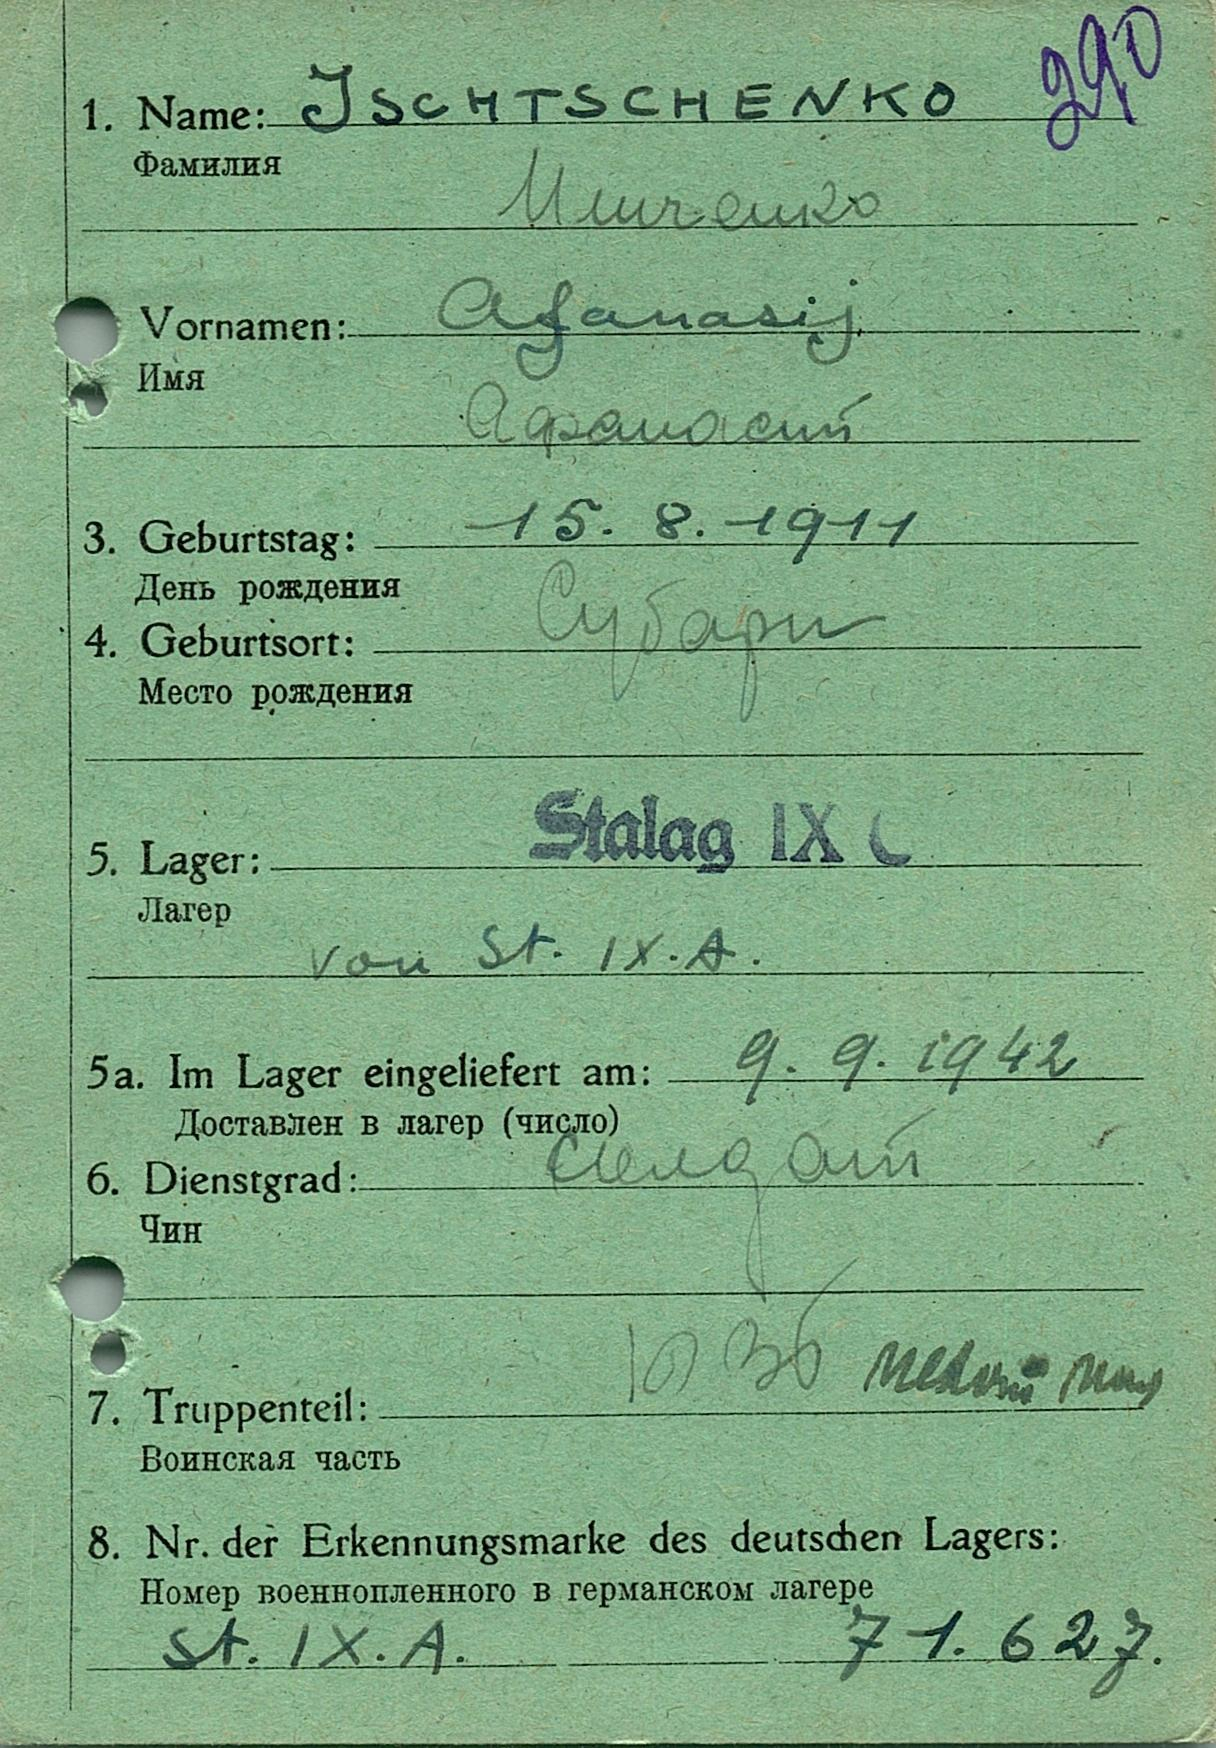 290
1. Name: ISCHTSCHENKO
Фамилия
Ищенко
Vornamen: Afanasij
Имя
Афанасий
3. Geburtstag: 15. 8. 1911
День рождения
4. Geburtsort: Субари
Место рождения
5. Lager: Stalag IX C
Лагер
von St. IX. A.
5a. Im Lager eingeliefert am: 9. 9. 1942
Доставлен в лагер (число)
6. Dienstgrad: Солдат
Чин
7. Truppenteil:
Воинская часть
8. Nr. der Erkennungsmarke des deutschen Lagers:
Номер военнопленного в германском лагере
St. IX. A. 71. 627.